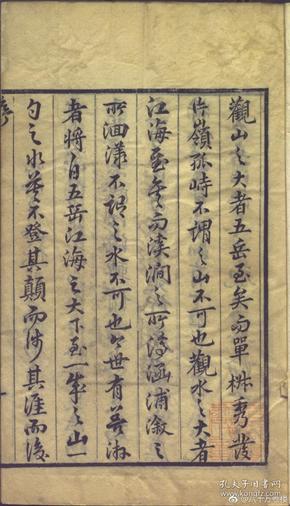 觀山之大者五岳至矣而單椒秀發
片嶺孤峙不謂之山不可也觀水之大者
江海至矣而溪澗之所渟涵浦漵之
所洄漾不謂之水不可也今世有善游
者將自五岳江海之大下至一拳之山一
勺之水莫不登其顛而涉其涯而後
序
孔夫子旧书网
@八千万卷楼